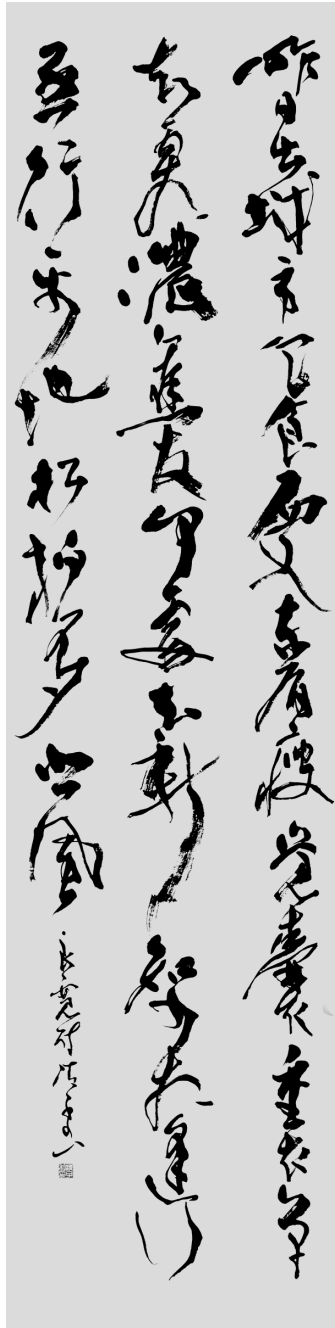 昨日出城市乞食西又東肩瘦覺囊重衣單
知霜濃舊友何處去新知少相逢行
行樂地松柏多悲風
良寛詩